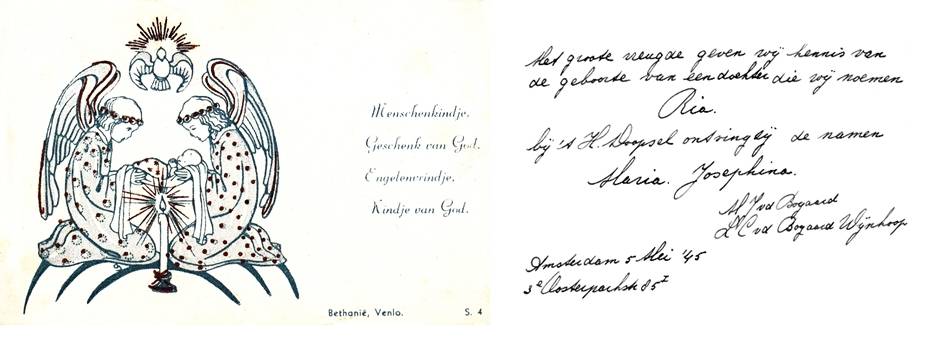 Menschenkindje.
Geschenk van God.
Engelenvrindje.
Kindje van God.
Bethanië, Venlo.
S. 4
Met groote vreugde geven wij kennis van
de geboorte van een dochter die wij noemen
Ria.
bij 't H. Doopsel ontving zij de namen
Maria. Josephina.
vd Bogaard
vd Bogaard Wijnhoop
Amsterdam 5 Mei '45
3e Oosterparkstr 85 I